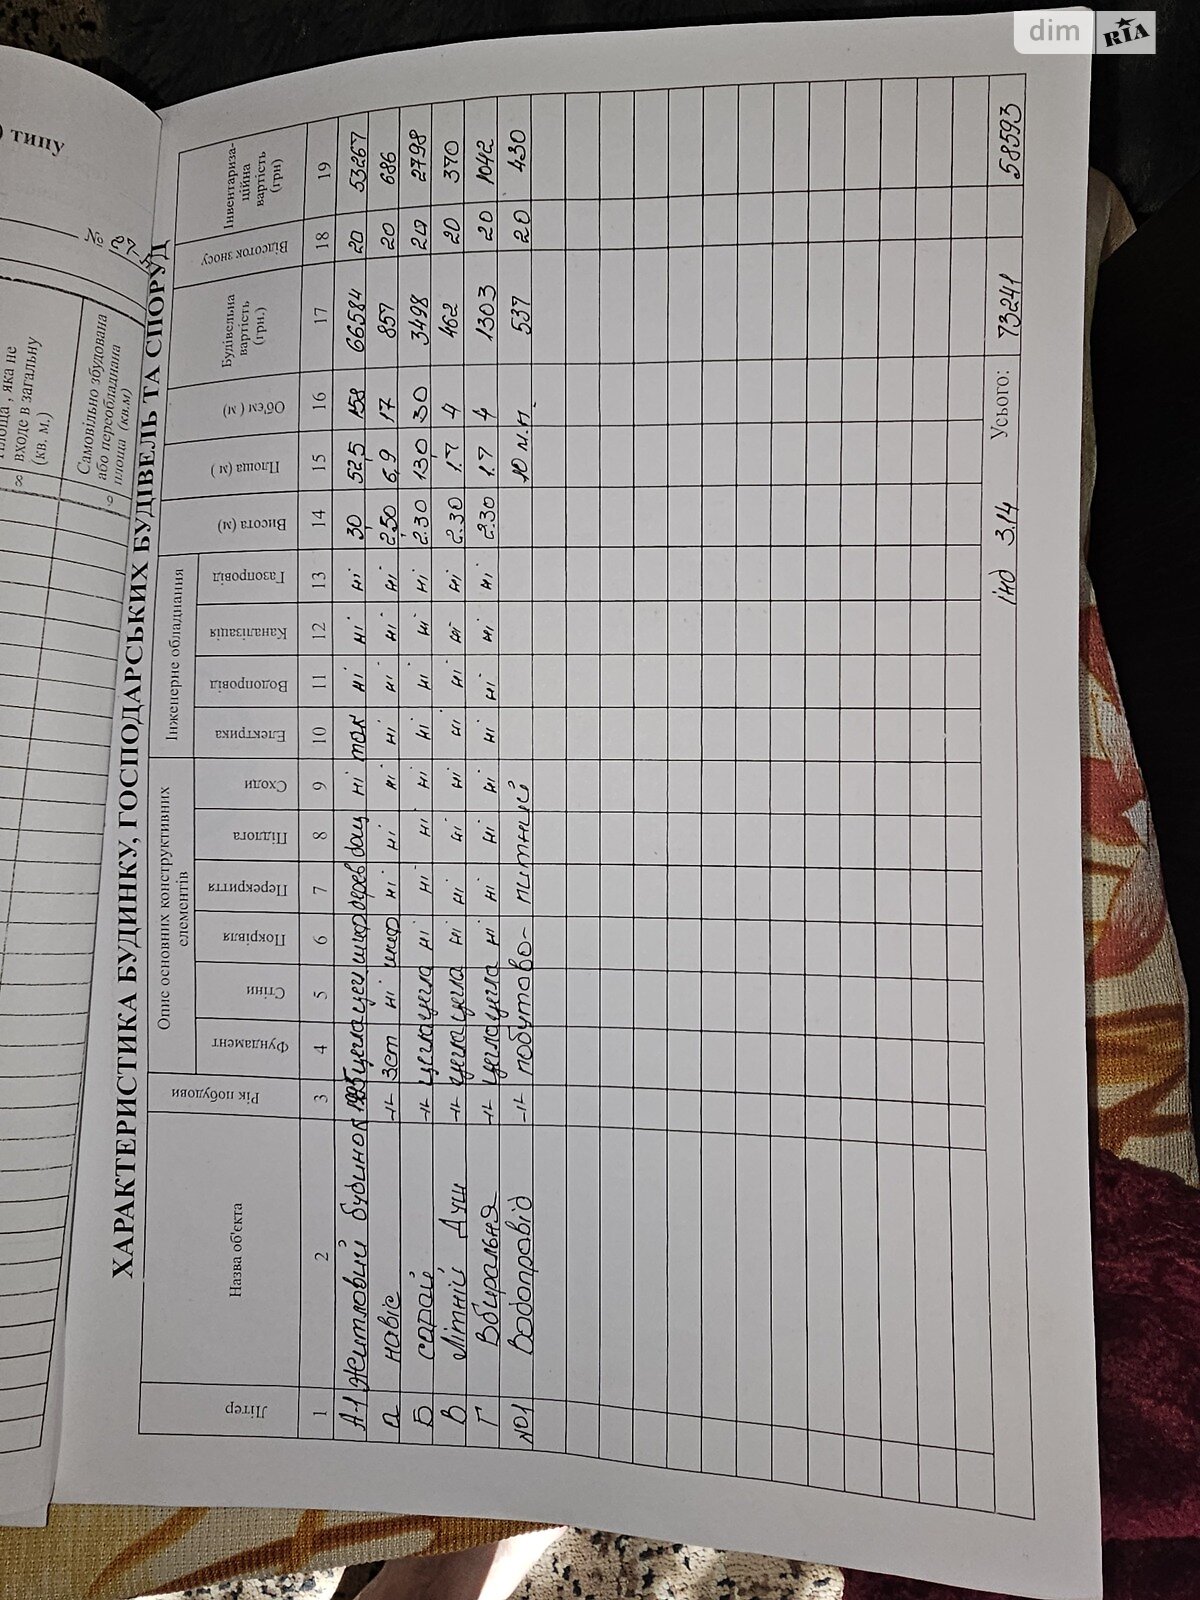 dim RIA
) типу
№
входе в загальну
(кв. м.)
8
Самовільно збудована
або переобладнана
площа (кв.м)
9
ХАРАКТЕРИСТИКА БУДИНКУ, ГОСПОДАРСЬКИХ БУДІВЕЛЬ ТА СПОРУД
Літер Назва об'єкта Рік побудови Опис основних конструктивних елементів Інженерне обладнання Висота (м) Площа (м ) Об'єм ( м ) Будівельна вартість (грн.) Відсоток зносу Інвентариза-ційна вартість (грн)
Фундамент Стіни Покрівля Перекриття Підлога Сходи Електрика Водопровід Каналізація Газопровід
1 2 3 4 5 6 7 8 9 10 11 12 13 14 15 16 17 18 19
А-1 Житловий будинок 1925 цегла цег шиф дерев дощ ні так ні ні ні 30 52,5 158 66584 20 53267
а навіс -//- зст ні шиф ні ні ні ні ні ні ні 2,50 6,9 17 857 20 686
Б сарай -//- цегла цегла ні ні ні ні ні ні ні ні 2.30 13,0 30 3498 20 2798
В Літній Душ -//- цегла цегла ні ні ні ні ні ні ні ні 2.30 1.7 4 462 20 370
Г Вбиральня -//- цегла цегла ні ні ні ні ні ні ні ні 2.30 1.7 4 1303 20 1042
№1 Водопровід -//- побутово- питний 10 м.п. 537 20 430
інд 3.14 Усього: 73241 58593